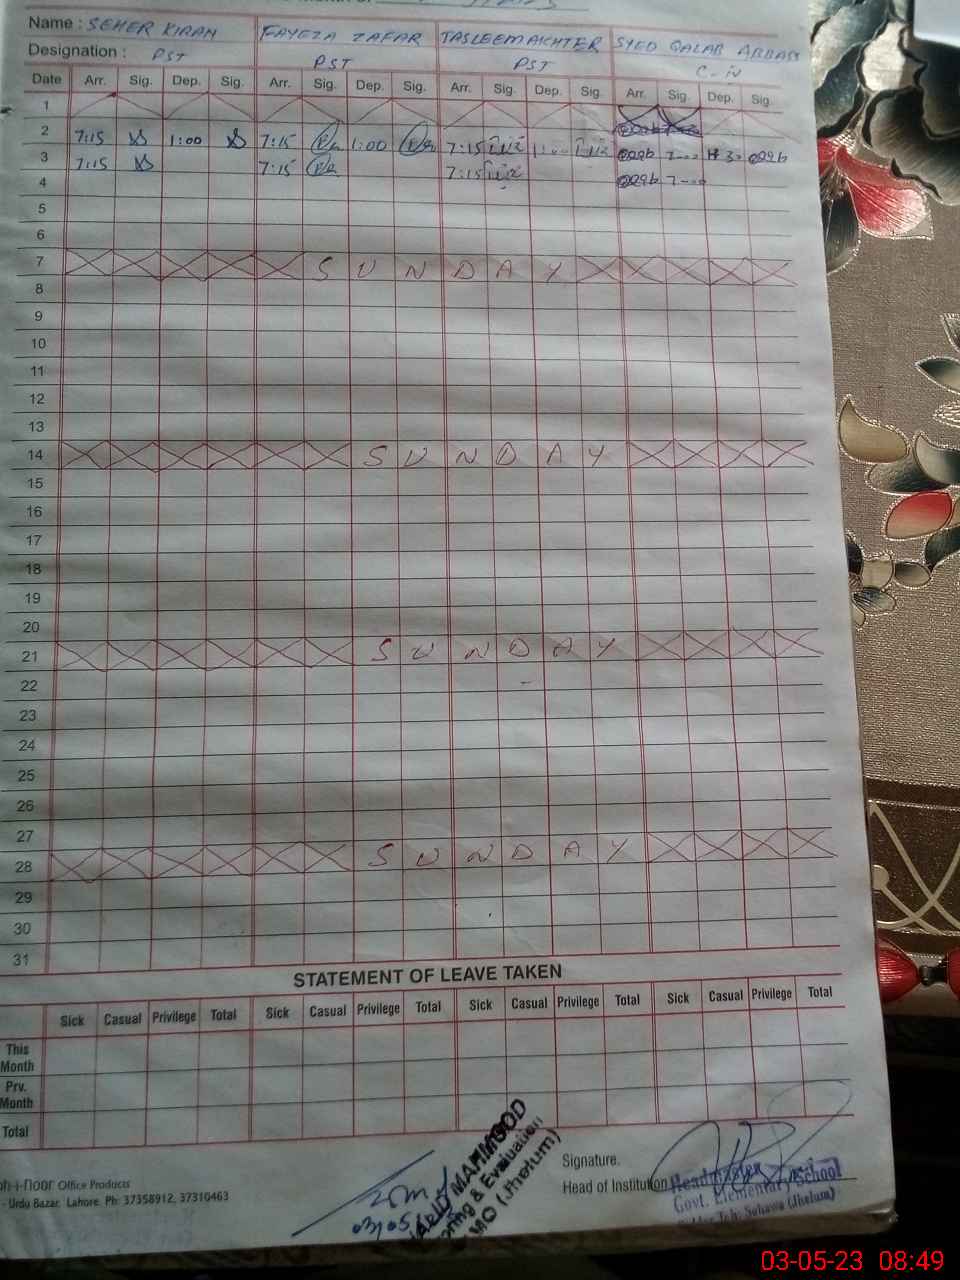 Name : SEHER KIRAN FAYEZA ZAFAR TASLEEM AKHTER SYED QALAB ABBAS
Designation : PST PST PST C-IV
Date Arr. Sig. Dep. Sig. Arr. Sig. Dep. Sig. Arr. Sig. Dep. Sig. Arr. Sig. Dep. Sig.
1
2 7:15 1:00 7:15 1:00 7:15 1:00
3 7:15 7:15 7:15
4
5
6
7 SUNDAY
8
9
10
11
12
13
14 SUNDAY
15
16
17
18
19
20
21 SUNDAY
22
23
24
25
26
27
28 SUNDAY
29
30
31
STATEMENT OF LEAVE TAKEN
Sick Casual Privilege Total Sick Casual Privilege Total Sick Casual Privilege Total Sick Casual Privilege Total
This Month
Prv. Month
Total
Signature.
Head of Institution
Headmaster
Govt. Elementary School
Teh: Sohawa (Jhelum)
MAHMOOD
& Evaluation
(Jhelum)
Office Products
- Urdu Bazar, Lahore. Ph: 37358912, 37310463
03-05-23 08:49